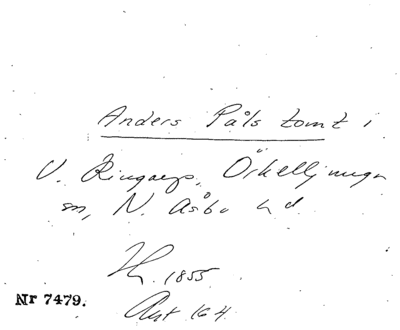 Anders Påls tomt i
V. Ringarp, Örkelljunga
sn, N. Åsbo hd
Th. 1855.
Nr 7479.
Avst 164.